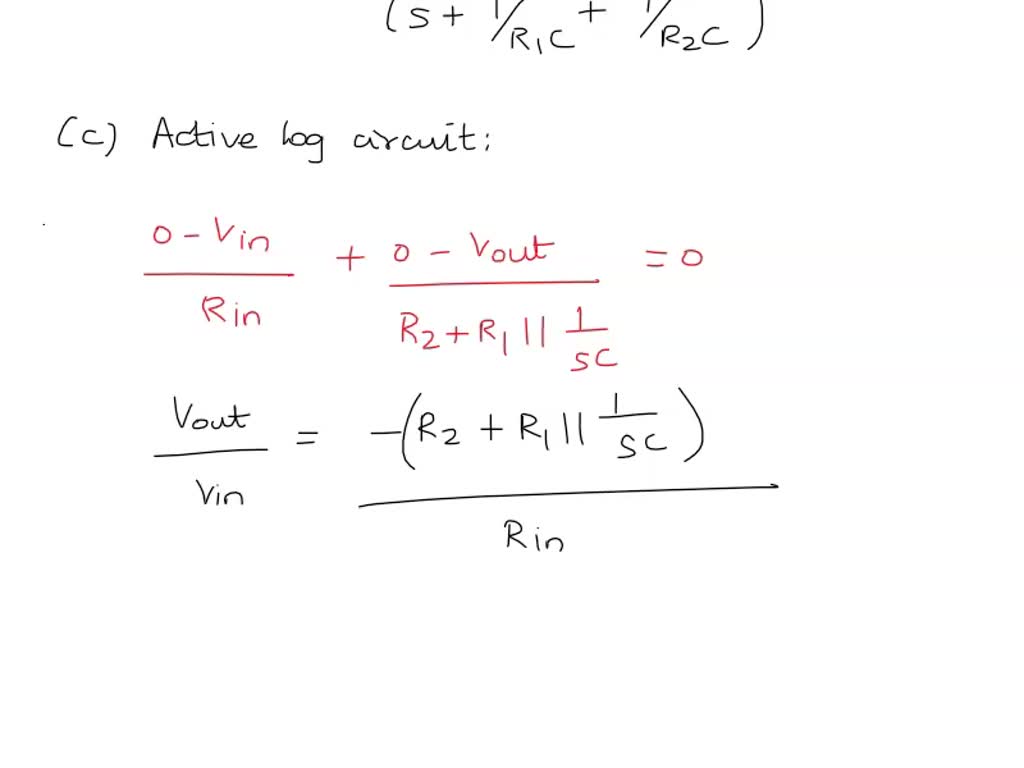 (s + 1/R1C + 1/R2C)
(c) Active log circuit:
0 - Vin / Rin + 0 - Vout / R2 + R1 || 1/sC = 0
Vout / Vin = -(R2 + R1 || 1/sC) / Rin